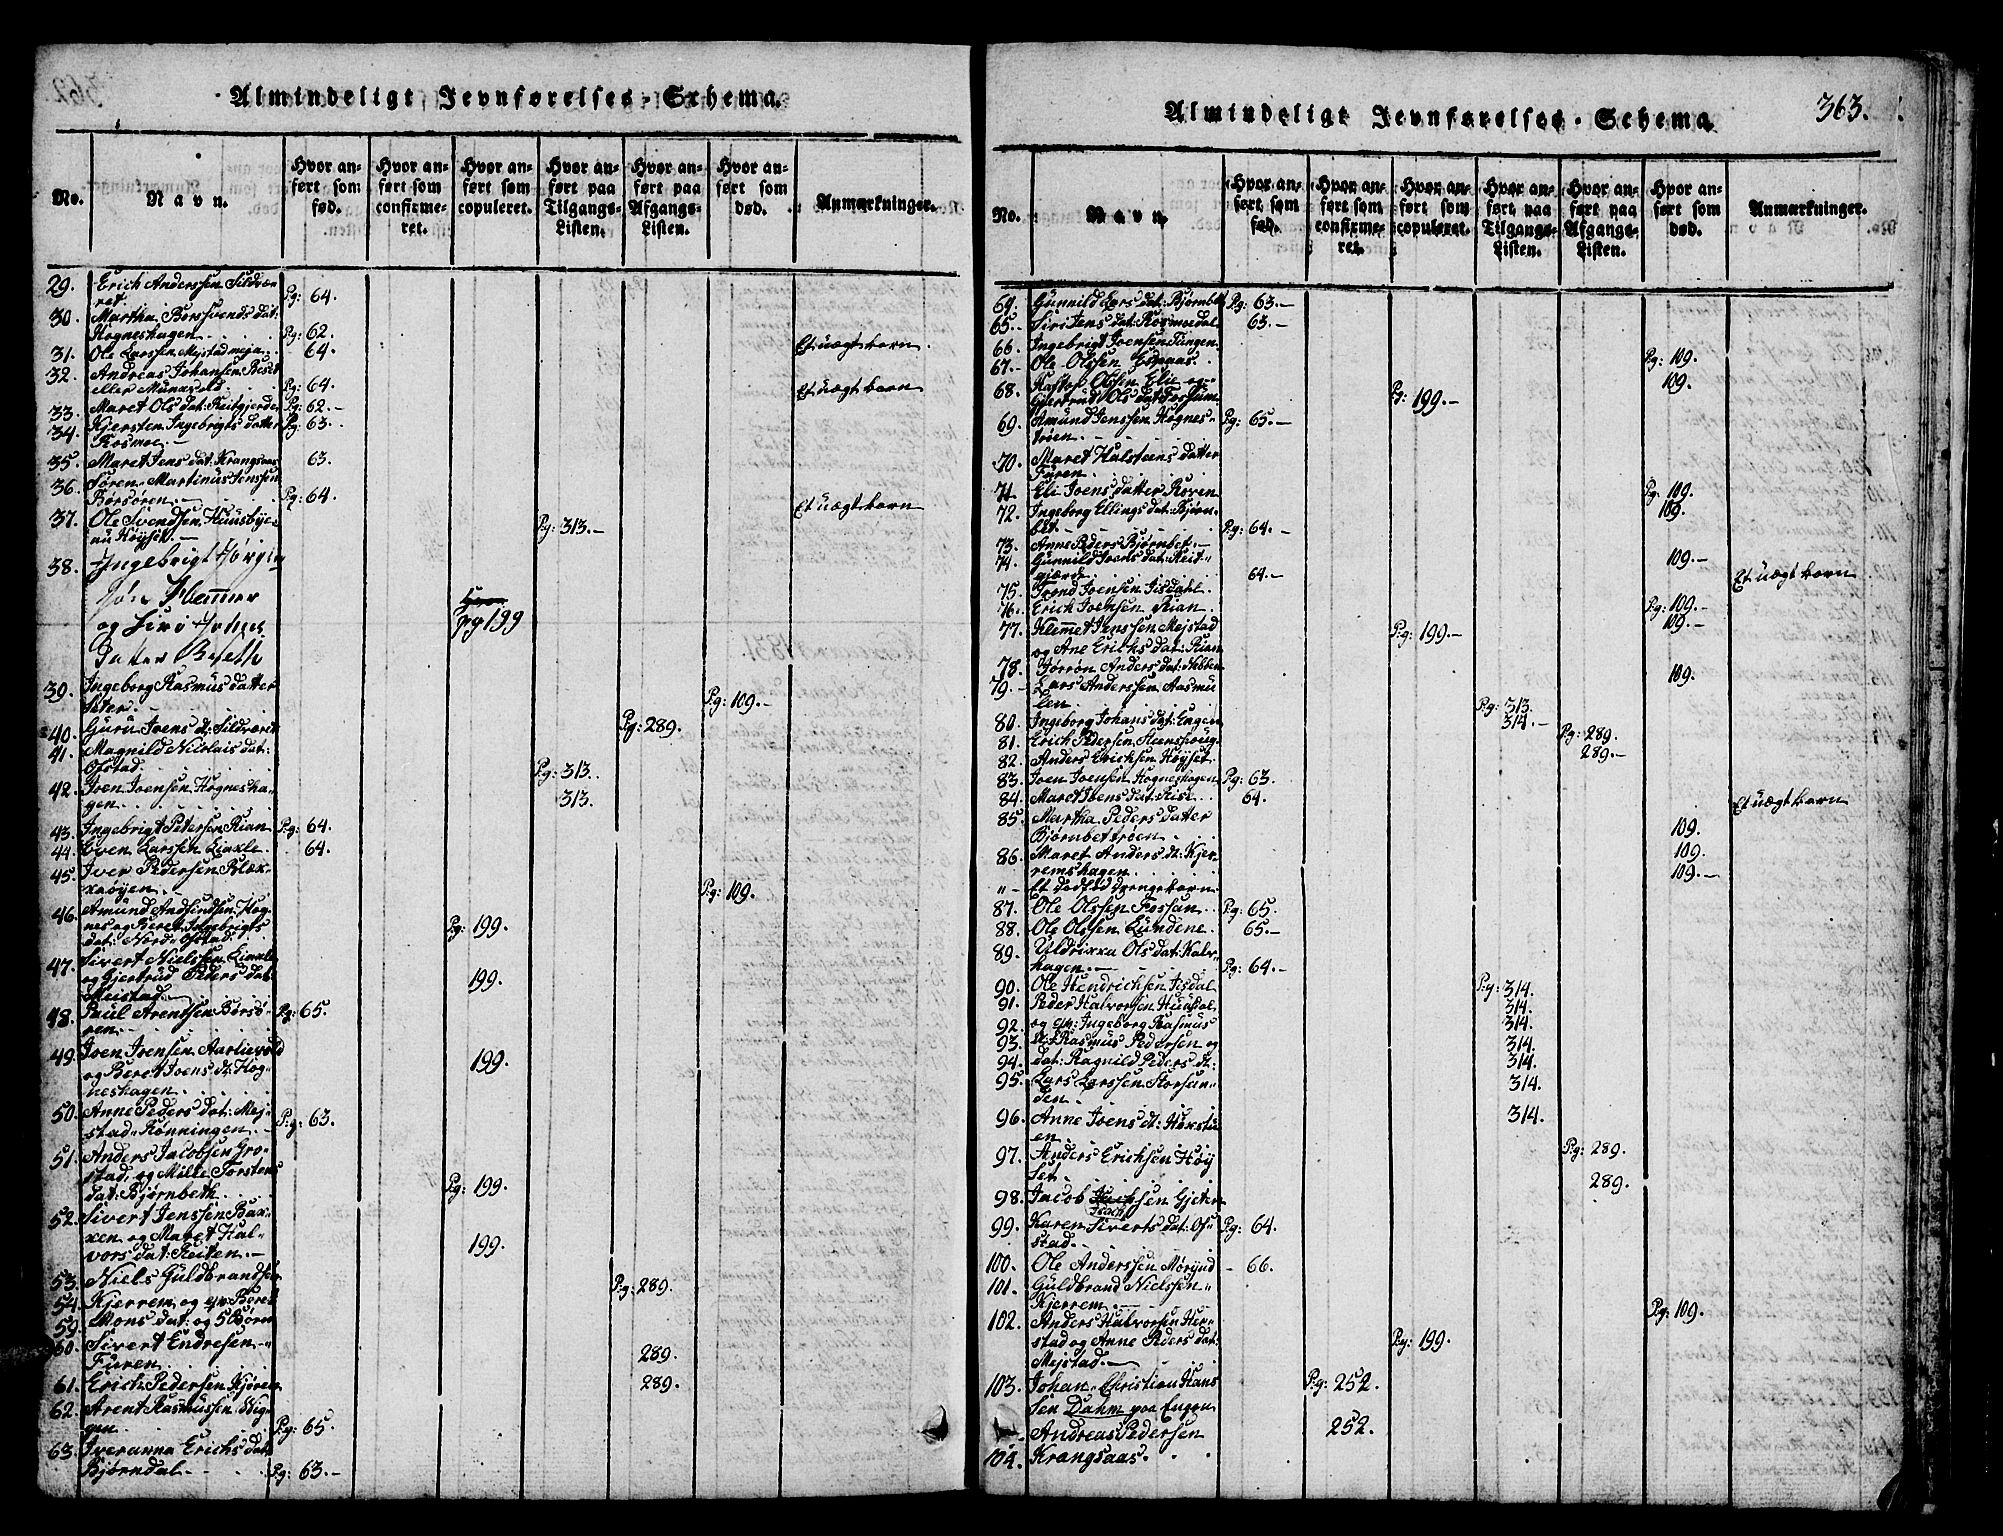 Almindeligt Jevnførelses-Schema.
No. Navn. Hvor anført som fød. Hvor anført som confirmeret. Hvor anført som copuleret. Hvor anført paa Tilgangs-Listen. Hvor anført paa Afgangs-Listen. Hvor anført som død. Anmærkninger.
29. Erich Anderssen Sildvæ
ret. Pg: 64.
30. Martha Bersvends dat:
Hogneshagen Pg: 62.
31. Ole Larssen Mejstad 64. Et uægt barn.
32. Andreas Johansen Beset
eller Munkvold. Pg: 64. Et uægt barn
33. Maret Ols dat: Reitgjerde Pg: 62.-
34. Kjersten Ingebrigts datter Pg: 63.
Rosmoe.-
35. Maret Jens dat: Krangsaas 63.
36. Søren Martinus Jenssen
Børsøren. Pg: 64. Et uægt barn
37. Ole Svendsen Huusbye Pg: 313.-
au Høyset.-
38. Ingebrigt Jørgen
søn Hammer
og Siri Johns pg 199
Datter Beseth
39. Ingeborg Rasmus datter
Sæter. Pg: 109.-
40. Guru Ivens d: Sildværet Pg: 289.
41. Magnild Nicolais dat:
Ofstad. Pg: 313.
42. Iven Ivensen Hogneshagen. 313.
43. Ingebrigt Petersen Rian Pg: 64.
44. Even Larssen Lixle. 64.
45. Iver Pedersen Blæk-
køyen. Pg: 109.
46. Amund Andfindsen Hog-
nes og Beret Ingebrigts Pg: 199.
dat: Nord-Ofstad.
47. Sivert Nielssen Lixle
og Gjertrud Peders dat: 199.
Mejstad.
48. Paul Arentsen Børsø- Pg: 65.
ren.-
49. Iven Ivensen Aarlievold
og Beret Ivens d: Hog- 199.
neshagen.
50. Anne Peders dat: Mej-
stad-Rønningen. Pg: 63.
51. Anders Jacobsen Gro-
stad, og Mille Torstens
dat: Bjørnbeth. Pg: 199.
52. Sivert Jenssen Bak-
ken og Maret Hal-
vors dat: Reiten.- 199.
53. Niels Guldbrandsen
54. Kjerrem og qv: Beret Pg: 289.
59. Mons dat: og 5 Børn
60. Sivert Endresen
Furen. 289.
61. Erich Pedersen Kjøren 289.
62. Arent Rasmussen Vig-
gen. Pg: 65.
63. Iveranna Erichs dat:
Bjørndal. Pg: 63.-
363.
Almindeligt Jevnførelses-Schema
No. Navn. Hvor anført som fød. Hvor anført som confirmeret. Hvor anført som copuleret. Hvor anført paa Tilgangs-Listen. Hvor anført paa Afgangs-Listen. Hvor anført som død. Anmærkninger.
64. Gunnild Lars dat: Bjørnbet Pg: 63.-
65. Siri Jens dat: Rosmoedal 63.-
66. Ingebrigt Joensen Tungen
67. Ole Olssen Esmaas. Pg: 109.
68. Olssen Elie og 109.
Gjertrud Ols dat: Fossum Pg: 199.-
69. Amund Jenssen Hognes- Pg: 65.-
trøen.
70. Maret Halsteens datter
Furen
71. Eli Joens datter Roven Pg: 109.
72. Ingeborg Ellings dat: Bjørn- 109.
bet Pg: 64.-
73. Anne Peders Bjørnbet.-
74. Gunnild Joens dat: Reit- 109.-
gjærde. 64.- Et uægt barn
75. Trond Joensen Jisdahl
76. Erich Joensen Rian Pg: 109.-
77. Klemmet Jenssen Mejstad Pg: 199.- 109.-
og Ane Erichs dat: Rian
78. Jørrøn Anders dat: Nebben 109.
79. Lars Anderssen Aasmu
len Pg: 313.
80. Ingeborg Johans dat: Engen 314.-
81. Erich Pedersen Steenshoug Pg: 289.
82. Anders Erichsen Høyset. 289.-
83. Joen Joensen Hogneshagen Pg: 63.
84. Maret Joens dat: Risc. 64. Et uægt barn
85. Martha Peders datter
Bjørnbettrøen. 109.
86. Maret Anders d: Kjer- 109.
remshagen.
" - Et dødfød drengebarn 109.-
87. Ole Olssen Fossum. Pg: 65.
88. Ole Olssen Lundene. 65.-
89. Uldrikka Ols dat: Kalv-
hagen. Pg: 64.-
90. Ole Hendrichsen Jisdal Pg: 314.
91. Peder Halvorsen Huusdal 314.
92. og qv: Ingeborg Rasmus 314.
93. d: Rasmus Pedersen og 314.
94. dat: Ragnild Peders d: 314.
95. Lars Larssen Storsun- 314.
den
96. Anne Joens d: Hoxstu 314.
en
97. Anders Erichsen Høy Pg: 289.
set.
98. Jacob Isachsen Gjeten 289.
99. Karen Siverts dat: Of- Pg: 64.
stad.
100. Ole Anderssen Mørgud - 66.
101. Guldbrand Nielssen
Kjerrem. Pg: 109.
102. Anders Halvorsen Her-
stad og Anne Peders dat: Pg: 199.
Mejstad.
103. Johan Christian Hans Pg: 252.
sen Dahm paa Engen
Andreas Pedersen 252.
104. Krangsaas.